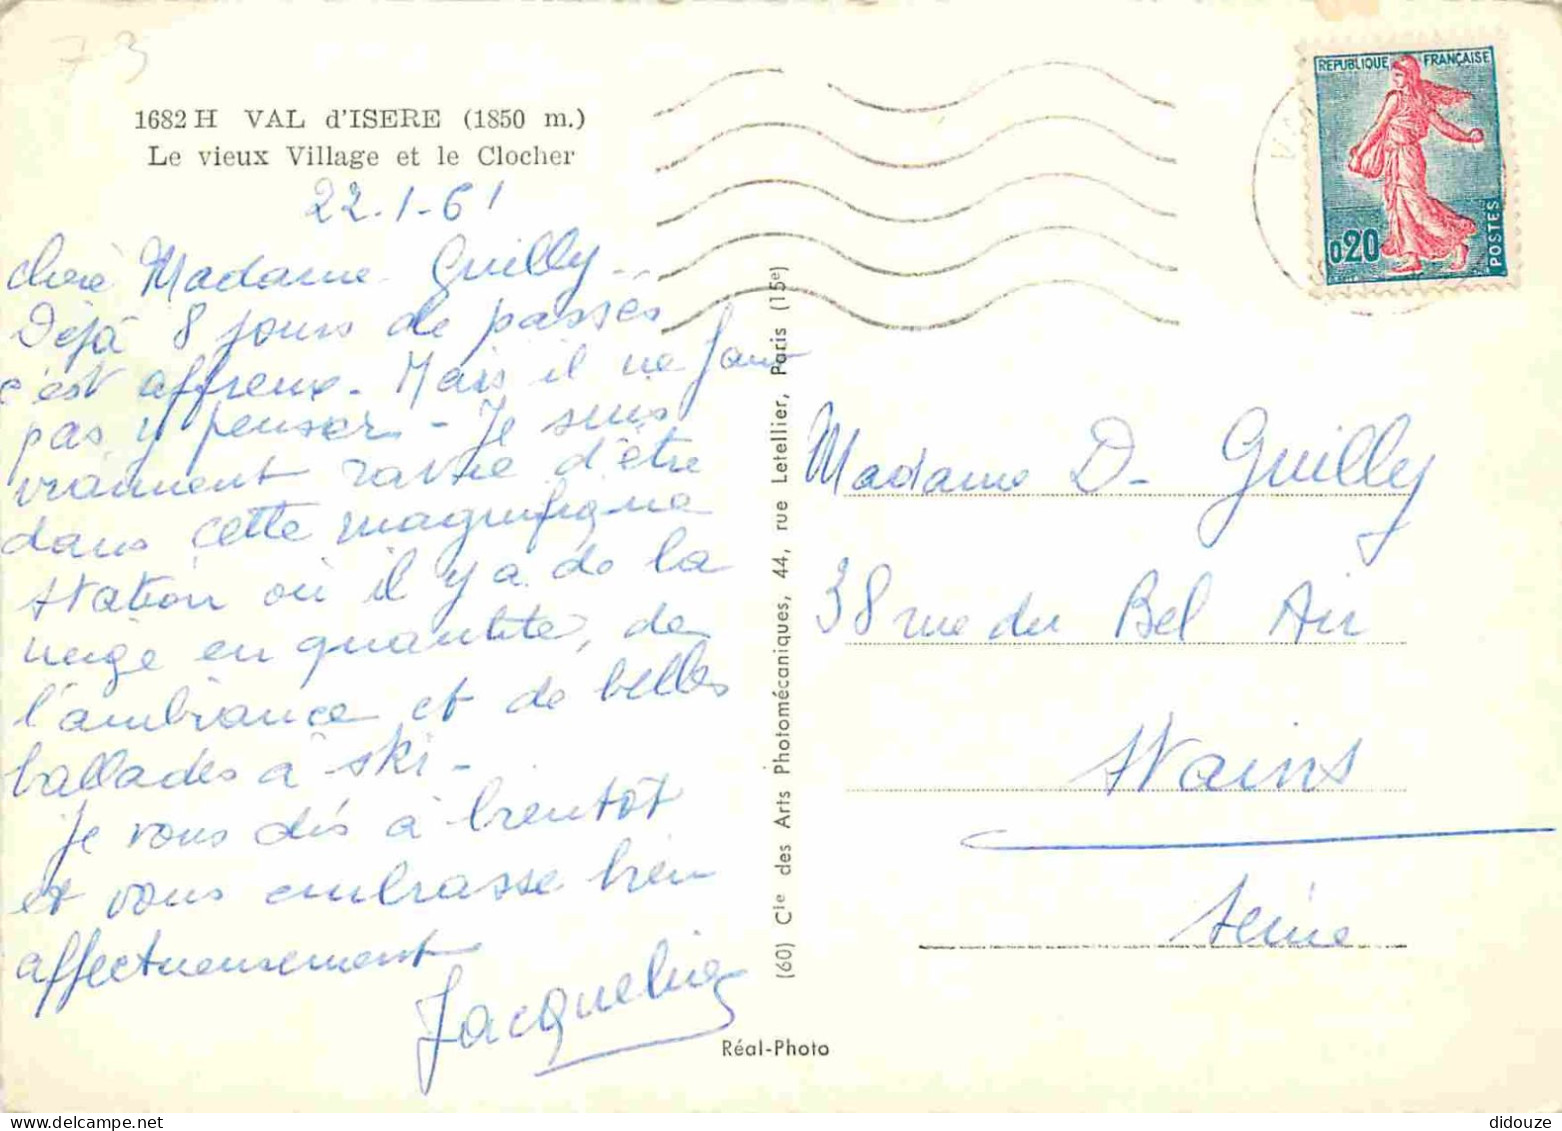 73
1682 H VAL d'ISERE (1850 m.)
Le vieux Village et le Clocher
22-1-61
chère Madame Guilly -
Déjà 8 jours de passés
c'est affreux - Mais il ne faut
pas y penser - Je suis
vraiment ravie d'être
dans cette magnifique
station où il y a de la
neige en quantité, de
l'ambiance et de belles
ballades à ski -
Je vous dis à bientôt
et vous embrasse bien
affectueusement
Jacqueline
Réal-Photo
(60) Cie des Arts Photomécaniques, 44, rue Letellier, Paris (15e)
REPUBLIQUE FRANÇAISE
0,20
POSTES
Madame D- Guilly
38 rue du Bel Air
Stains
Seine
delcampe.net
didouze